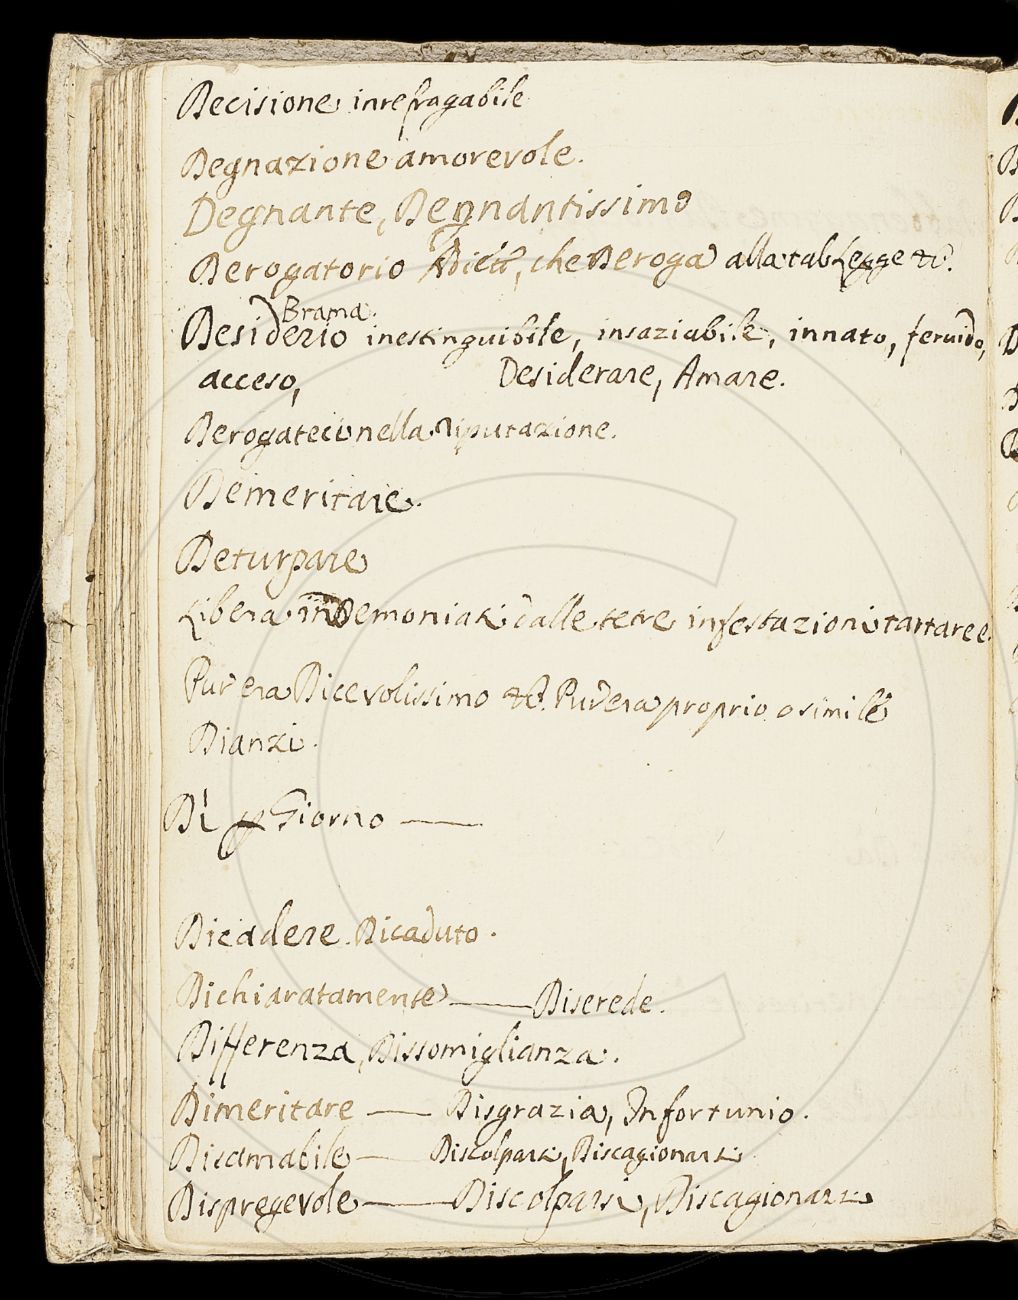 Decisione inrefragabile
Degnazione amorevole.
Degnante, Degnantissimo
Derogatorio che Deroga alla tal Legge &c.
Brama.
Desiderio inestinguibile, insaziabile, innato, feruido,
acceso, Desiderare, Amare.
nella riputazione.
Demeritare.
Deturpare
Libera Demoniati dalle tetre infestazioni tartaree.
Pur era Dicevolissimo &c. Pur era proprio o simile
Dianzi.
Dì p Giorno
Dicadere. Dicaduto.
Dichiaratamente Diserede.
Differenza, Dissomiglianza.
Dimeritare Disgrazia, Infortunio.
Disamabile Discolparsi, Discagionarsi
Dispregevole Discolparsi, Discagionarsi